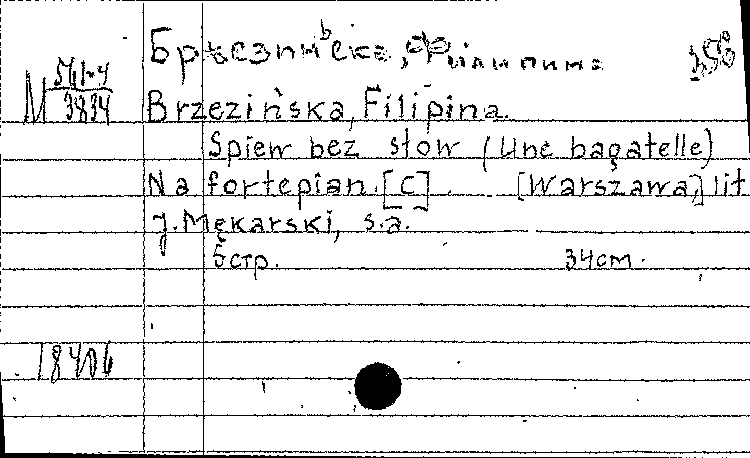 Бржезиньска, Филипина
M 561-4 / 3834
Brzezińska, Filipina.
Spiew bez słow (Une bagatelle)
Na fortepian. [C]. [Warszawa,] lit
J. Mękarski, s.a.
5 стр. 34 см.
18406